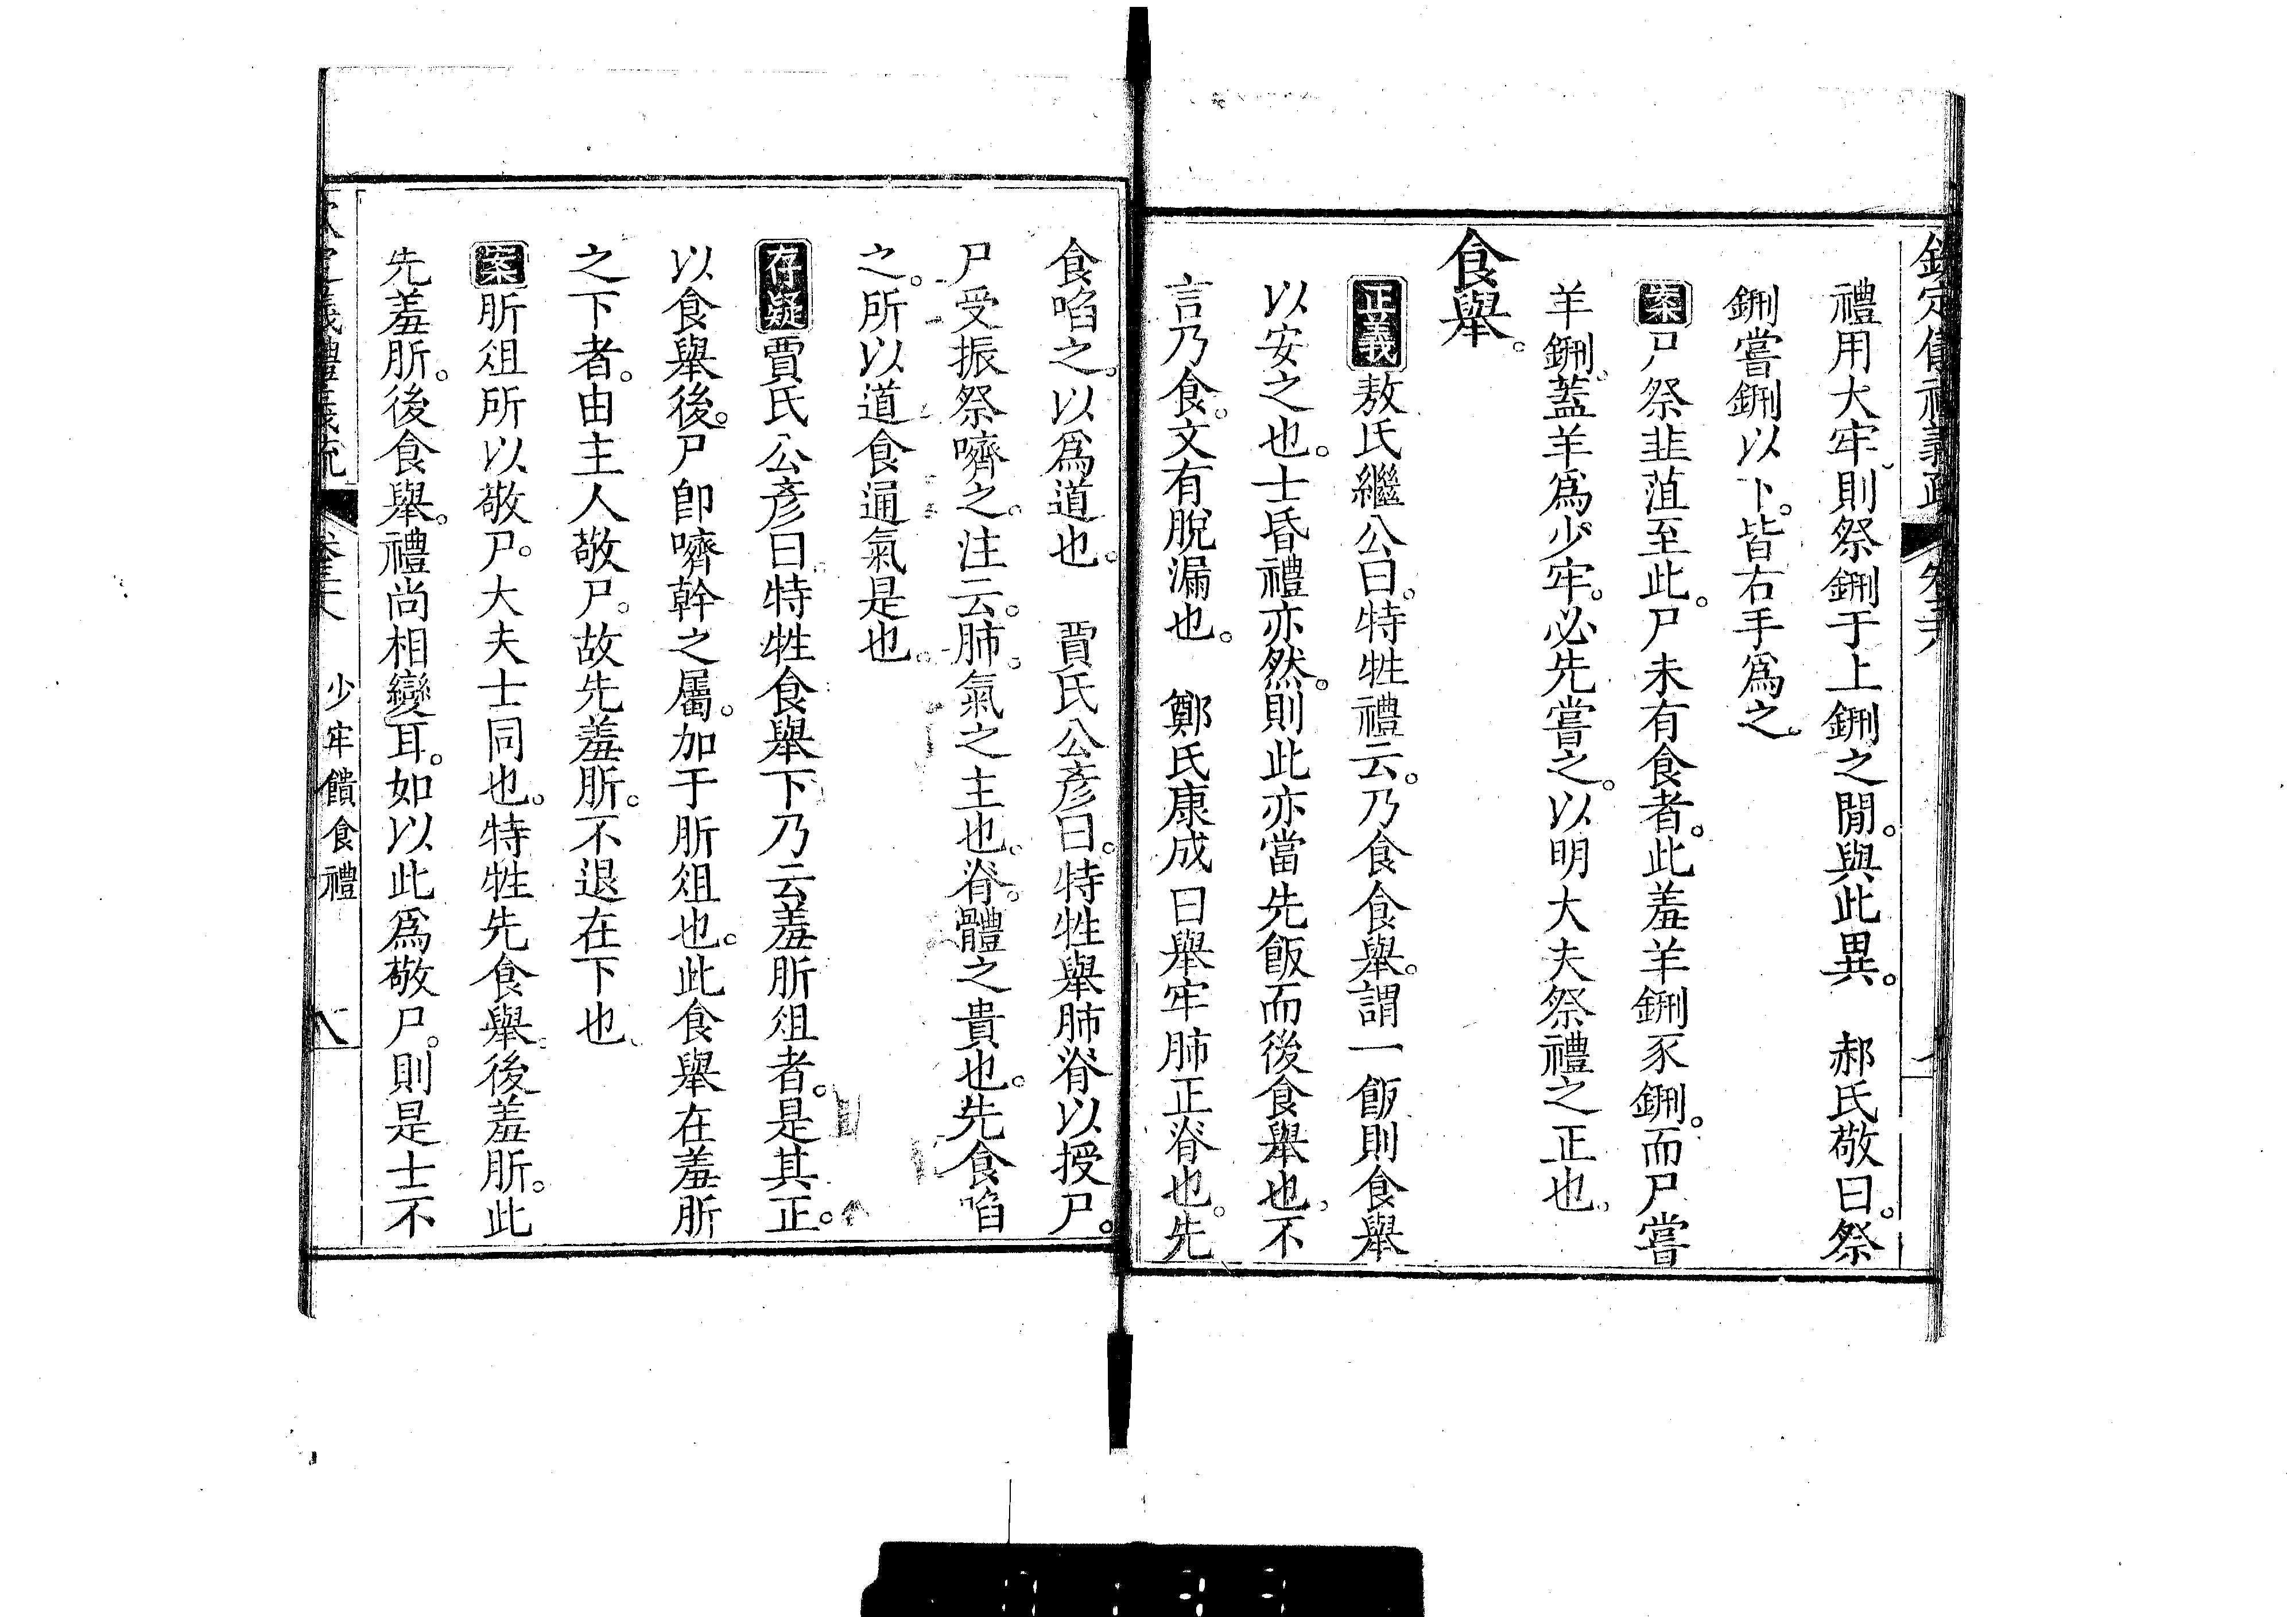 欽定儀禮義疏
禮用大牢則祭鉶于上鉶之閒。與此異。　郝氏敬曰。祭
鉶嘗鉶以下。皆右手爲之。
案尸祭韭菹至此。尸未有食者。此羞羊鉶豕鉶。而尸嘗
羊鉶。蓋羊爲少牢。必先嘗之。以明大夫祭禮之正也。
食舉。
正義敖氏繼公曰。特牲禮云。乃食食舉。謂一飯則食舉
以安之也。士昏禮亦然。則此亦當先飯而後食舉也。不
言乃食。文有脫漏也。　鄭氏康成曰舉牢肺正脊也。先
食啗之。以爲道也。　賈氏公彥曰。特牲舉肺脊以授尸。
尸受振祭嚌之。注云。肺。氣之主也。脊。體之貴也。先食啗
之。所以道食通氣是也。
存疑賈氏公彥曰。特牲食舉下乃云羞肵俎者。是其正。
以食舉後。尸卽嚌幹之屬。加于肵俎也。此食舉在羞肵
之下者。由主人敬尸。故先羞肵。不退在下也。
案肵俎所以敬尸。大夫士同也。特牲先食舉。後羞肵。此
先羞肵。後食舉。禮尚相變耳。如以此爲敬尸。則是士不
少牢饋食禮　八